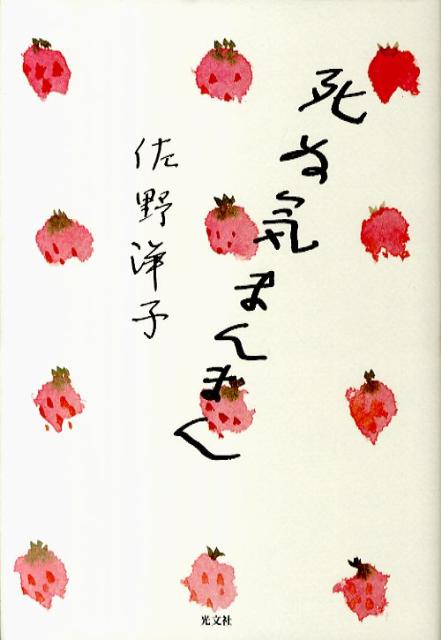 死ぬ気まんまん
佐野洋子
光文社